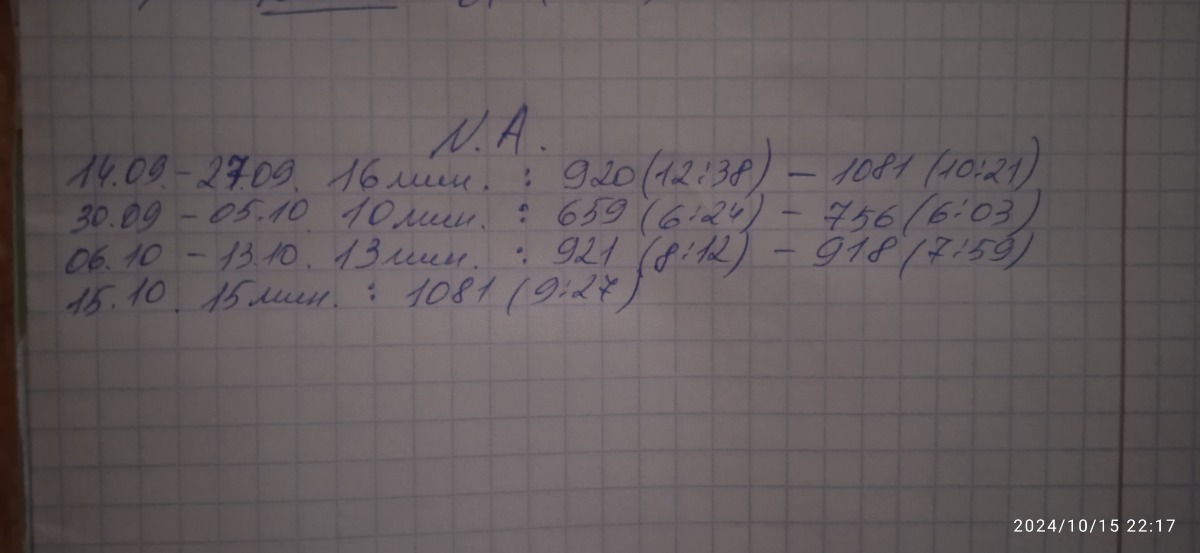 N.A.
14.09.-27.09. 16 мин. : 920 (12:38) - 1081 (10:21)
30.09 - 05.10. 10 мин. : 659 (6:24) - 756 (6:03)
06.10 - 13.10. 13 мин. : 921 (8:12) - 918 (7:59)
15.10. 15 мин. : 1081 (9:27)
2024/10/15 22:17